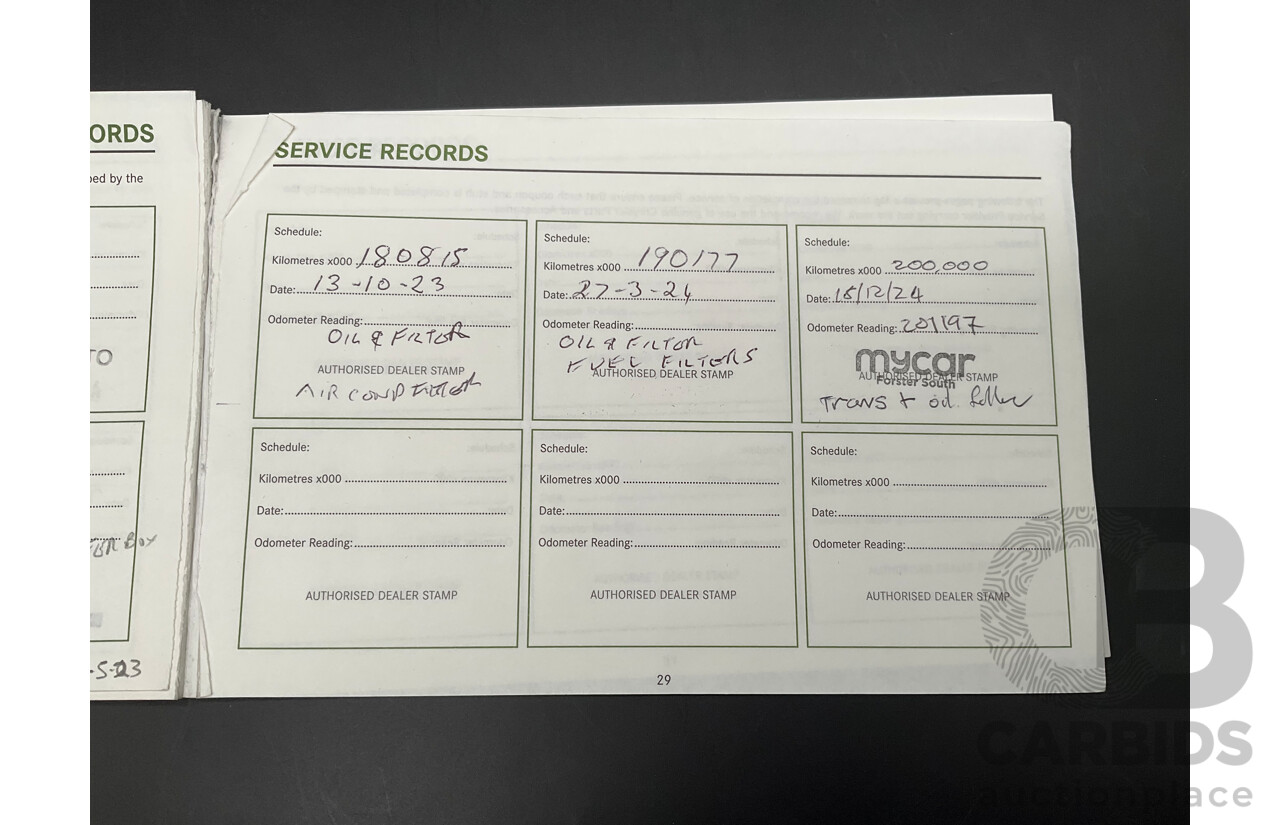 ORDS
bed by the
TO
TER BOX
-5-23
SERVICE RECORDS
Schedule:
Kilometres x000 180815
Date: 13-10-23
Odometer Reading:
OIL & FILTOR
AUTHORISED DEALER STAMP
AIR COND FILTOR
Schedule:
Kilometres x000 190177
Date: 27-3-24
Odometer Reading:
OIL & FILTOR
FUEL FILTERS
AUTHORISED DEALER STAMP
Schedule:
Kilometres x000 200,000
Date: 18/12/24
Odometer Reading: 201197
mycar
AUTHORISED DEALER STAMP
Forster South
Trans + oil
Schedule:
Kilometres x000
Date:
Odometer Reading:
AUTHORISED DEALER STAMP
Schedule:
Kilometres x000
Date:
Odometer Reading:
AUTHORISED DEALER STAMP
Schedule:
Kilometres x000
Date:
Odometer Reading:
AUTHORISED DEALER STAMP
29
CARBIDS
auctionplace